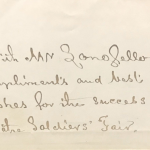 ith Mr Zonofello
pliments and best
shes for the success
the Soldiers' Fair.